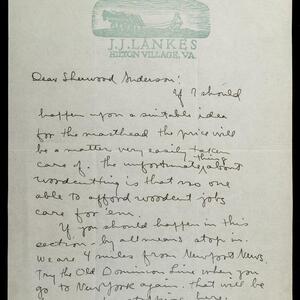 J.J. LANKES
HILTON VILLAGE, VA.
Dear Sherwood Anderson:
If I should
happen upon a suitable idea
for the masthead the price will
be a matter very easily taken
care of. The unfortunate thing about
woodcutting is that no one
able to afford woodcut jobs
care for 'em.
If you should happen in this
section - by all means stop in.
We are 4 miles from Newport News.
Try the Old Dominion Line when you
go to New York again. That will be